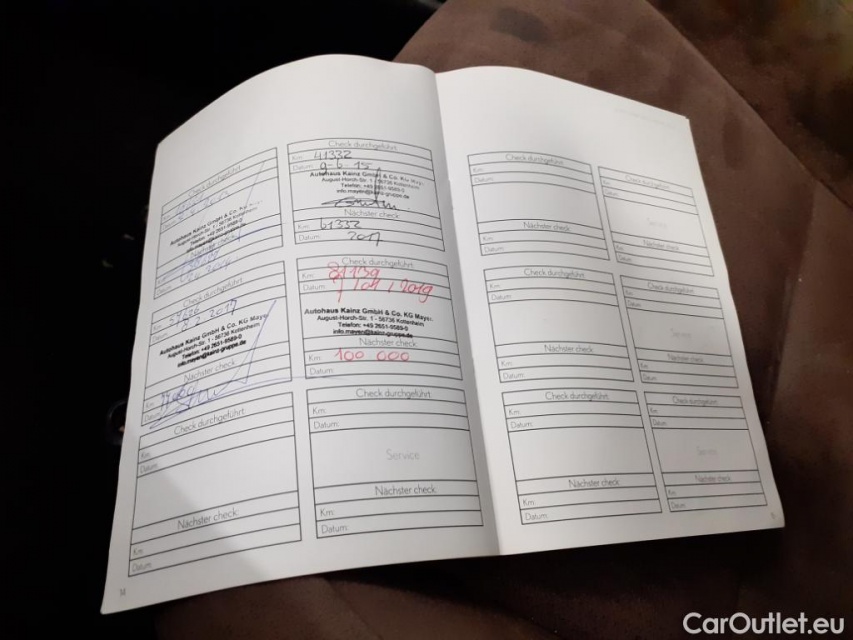 Check durchgeführt
Km:
Datum:
Autohaus Kainz GmbH & Co. KG
August-Horch-Str. 1 - 56736 Kottenheim
Telefon: +49 2651-9589-0
info.mayen@kainz-gruppe.de
Nächster check:
Km:
Datum:
Check durchgeführt
Km: 41332
Datum: 9-6-15
Autohaus Kainz GmbH & Co. KG Mayen
August-Horch-Str. 1 - 56736 Kottenheim
Telefon: +49 2651-9589-0
info.mayen@kainz-gruppe.de
Nächster check:
Km: 61332
Datum: 2017
Check durchgeführt
Km:
Datum: 2017
Autohaus Kainz GmbH & Co. KG Mayen
August-Horch-Str. 1 - 56736 Kottenheim
Telefon: +49 2651-9589-0
info.mayen@kainz-gruppe.de
Nächster check:
Km:
Datum:
Check durchgeführt
Km: 81139
Datum: 7/01/2019
Autohaus Kainz GmbH & Co. KG Mayen
August-Horch-Str. 1 - 56736 Kottenheim
Telefon: +49 2651-9589-0
info.mayen@kainz-gruppe.de
Nächster check:
Km: 100 000
Datum:
Check durchgeführt
Km:
Datum:
Nächster check:
Km:
Datum:
Check durchgeführt
Km:
Datum:
Service
Nächster check:
Km:
Datum:
14
Check durchgeführt
Km:
Datum:
Nächster check:
Km:
Datum:
Check durchgeführt
Km:
Datum:
Service
Nächster check:
Km:
Datum:
Check durchgeführt
Km:
Datum:
Nächster check:
Km:
Datum:
Check durchgeführt
Km:
Datum:
Service
Nächster check:
Km:
Datum:
Check durchgeführt
Km:
Datum:
Nächster check:
Km:
Datum:
Check durchgeführt
Km:
Datum:
Service
Nächster check:
Km:
Datum:
CarOutlet.eu